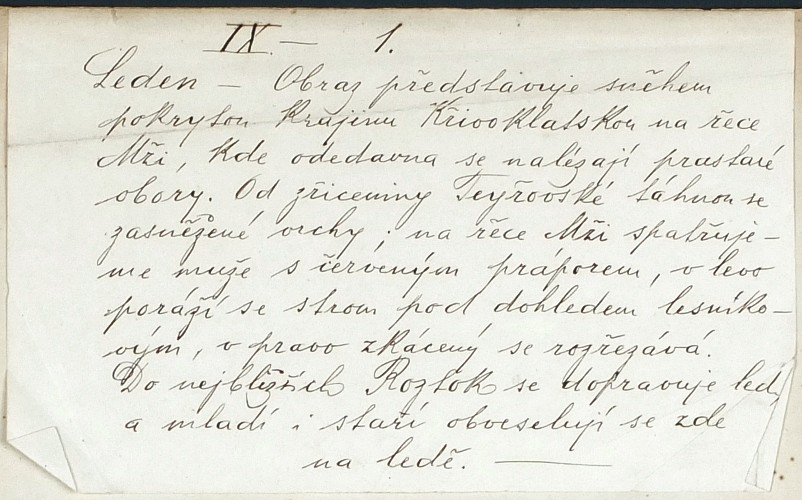 IX. — 1.
Leden — Obraz představuje sněhem
pokrytou krajinu Křivoklatskou na řece
Mži, kde odedavna se nalézají prastaré
obory. Od zříceniny Teyřovské táhnou se
zasněžené vrchy; na řece Mži spatřuje-
me muže s červeným práporem, v levo
poráží se strom pod dohledem lesníko-
vým, v pravo zkácený se rozřezává.
Do nejbližších Roztok se dopravuje led,
a mladí i staří obveselují se zde
na ledě. —